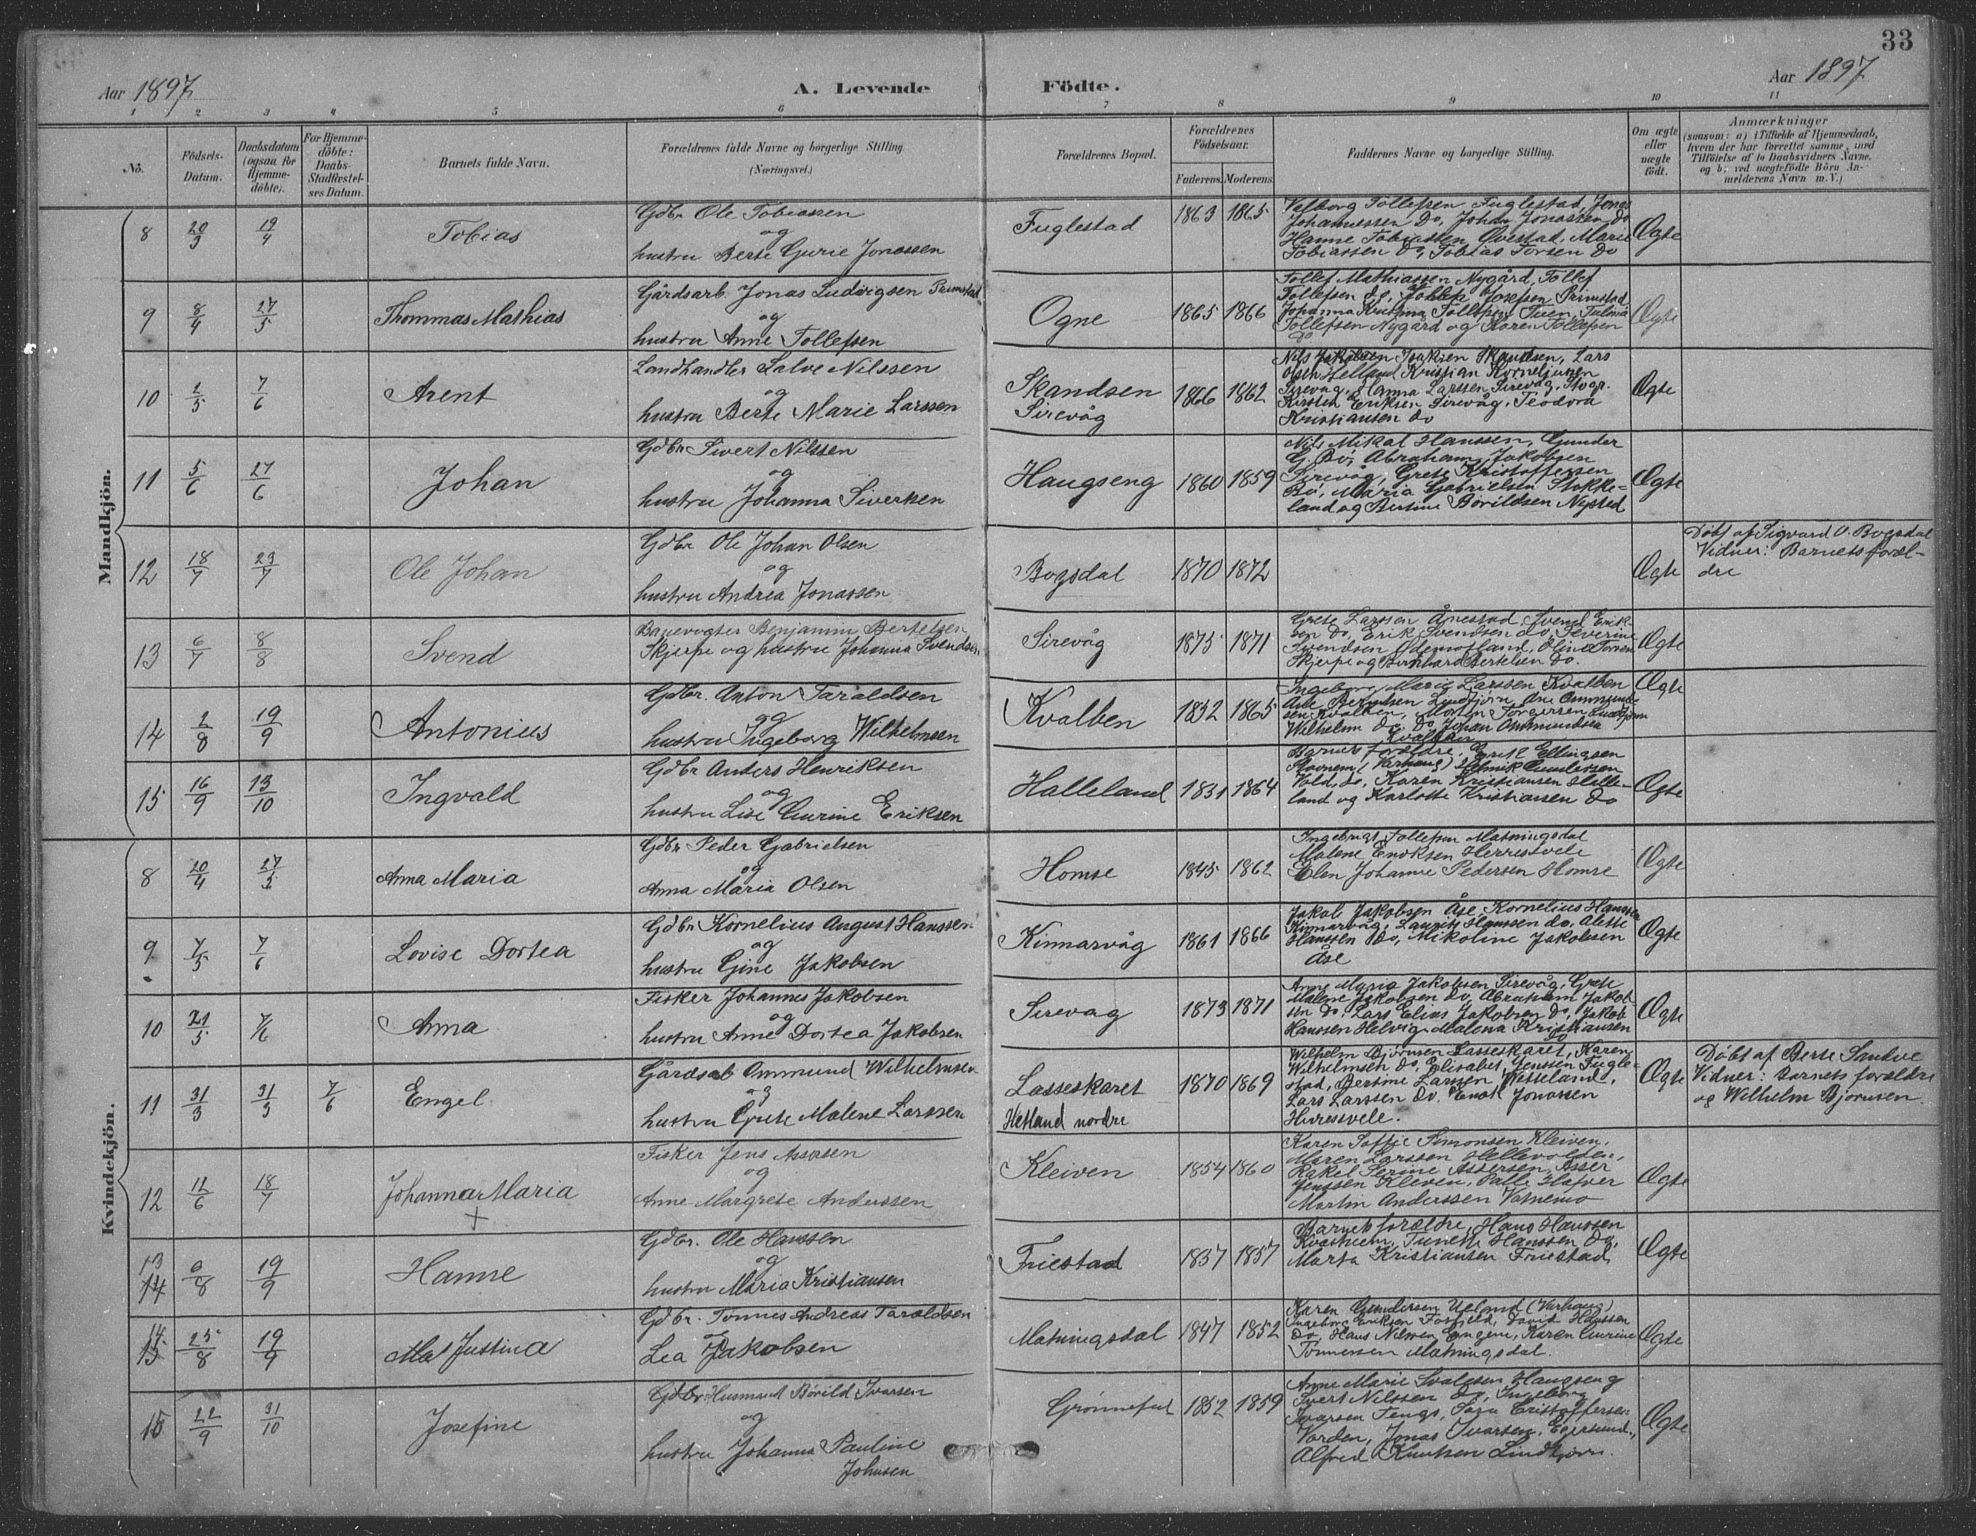 33
Aar 1897
A. Levende
Födte.
Aar 1897
1 2 3 4 5 6 7 8 9 10 11
No.
Födsels-
Datum.
Daabsdatum
(ogsaa for
Hjemme-
döbte).
For Hjemme-
döbte:
Daabs-
Stadfæstel-
ses Datum.
Barnets fulde Navn.
Forældrenes fulde Navne og borgerlige Stilling
(Næringsvei.)
Forældrenes Bopæl.
Forældrenes
Födselsaar.
Faderens. Moderens.
Faddernes Navne og borgerlige Stilling.
Om ægte
eller
uægte
födt.
Anmærkninger
(saasom: a) i Tilfælde af Hjemmedaab,
hvem der har forrettet samme, med
Tilföielse af to Daabsvidners Navne,
og b) ved uægtefödte Börn An-
melderens Navn m. V.)
Mandkjön.
8 20/3 19/4 Tobias
Gdbr Ole Tobiassen
og
hustru Berte Gurie Jonassen
Fuglestad 1863 1865
Velborg Tollefsen Fuglestad, Jonas
Johannessen do, Johan Jonassen do
Hanne Tobiassen Øvestad, Marie
Tobiassen do, Tobias Torsen do
Ægte
9 8/4 27/5 Thommas Mathias
Gårdsarb. Jonas Ludvigsen Primstad
og
hustru Anne Tollefsen
Ogne 1865 1866
Tollef Mathiassen Nygård, Tollef
Tollefsen do, Tollef Josefsen Primstad
Johanna Kristina Tollefsen Tuen, Talina
Tollefsen Nygård og Karen Tollefsen
do
Ægte
10 1/5 7/6 Arent
Landhandler Salve Nilssen
og
hustru Berte Marie Larssen
Skandsen
Sirevåg
1866 1862
Nils Jakobsen Joakien Skandsen, Lars
Olsen Helland Kristian Korneliusen
Sirevåg, Hanna Larssen Sirevåg,
Kirsten Eriksen Sirevåg, Teodora
Kristiansen do
Ægte
11 5/6 27/6 Johan
Gdbr Sivert Nilssen
og
hustru Johanna Sivertsen
Haugseng 1860 1859
Nils Mikal Hanssen, Gunder
G. Bø, Abraham Jakobsen
Sirevåg, Grete Kristoffersen
Bø, Maria Gabrielsen Stokke-
land og Bertine Børildsen Nysted
Ægte
12 18/7 23/7 Ole Johan
Gdbr Ole Johan Olsen
og
hustru Andrea Jonassen
Bogsdal 1870 1872
Ægte
Døbt af Sigvard O. Bogsdal
Vidner: Barnets foræl-
dre
13 6/7 8/8 Svend
Banevogter Benjamin Bertelsen
Skjerpe og hustru Johanna Svendsen
Sirevåg 1875 1871
Grete Larssen Ånestad, Svend Erik-
sen do, Erik Svendsen do, Severine
Svendsen Ødemotland, Oline Torsen
Skjerpe og Bernhard Bertelsen do.
Ægte
14 2/8 19/9 Antonius
Gdbr Anton Taraldsen
og
hustru Ingeborg Wilhelmsen
Kvalben 1832 1865
Ingeborg Marie Larssen Kvalben
Kvalben, Morten Torgersen
Wilhelm do, Johan Ommundsen
Kvalben
Ægte
15 16/9 13/10 Ingvald
Gdbr Anders Henriksen
og
hustru Lise Gurine Eriksen
Halleland 1831 1864
Barnets forældre, Erik Ellingsen
Stavnem (Varhaug) Gundersen
Vold, do, Karen Kristiansen Halle-
land og Karlotte Kristiansen do
Ægte
Kvindekjön.
8 20/4 27/5 Anna Maria
Gdbr Peder Gabrielsen
og
Anna Maria Olsen
Homse 1845 1862
Ingebrigt Tollefsen Matningsdal
Malene Enoksen Herresvele
Elen Johanne Pedersen Homse
Ægte
9 7/5 7/6 Lovise Dortea
Gdbr Kornelius August Hanssen
og
hustru Gine Jakobsen
Kinnarvåg 1861 1866
Jakob Jakobsen Åse, Kornelius Hanssen
Kinnarvåg, Laurits Hanssen do, Alette
Hanssen do, Mikoline Jakobsen
Åse
Ægte
10 21/5 7/6 Anna
Fisker Johannes Jakobsen
og
hustru Anne Dortea Jakobsen
Sirevag 1873 1871
Anne Maria Jakobsen Sirevåg, Grete
Malene Jakobsen do, Abraham Jakob-
sen do, Lars Elias Jakobsen do, Jakob
Hanssen Helvig, Malena Kristiansen
do
Ægte
11 31/3 31/3 7/6 Engel
Gårdsarb Ommund Wilhelmsen
og
hustru Grete Malene Larssen
Lasseskaret
Hetland nordre
1870 1869
Wilhelm Bjørnsen Lasseskaret, Karen
Wilhelmsen do, Elisabet Jenssen Fugle-
stad, Bertine Larssen Wetteland,
Lars Larssen do. Enok Jonassen
Herresvele.
Ægte
Døbt af Berte Sandve
Vidner: Barnets forældre
og Wilhelm Bjørnsen
12 11/6 18/7 Johanna Maria
+
Fisker Jens Assersen
og
Anne Margrete Anderssen
Kleiven 1854 1860
Karen Soffie Simonsen Kleiven,
Maren Larssen Hellevolden,
Rakel Serine Assersen, Asser
Jenssen Kleven, Palle Hafver
Martin Anderssen Vatnemo
Ægte
13
14 6/8 19/9 Hanne
Gdbr. Ole Hanssen
og
hustru Maria Kristiansen
Friestad 1857 1857
Barnets forældre, Hans Hanssen
Kvasheim, Tunette Hanssen do,
Marta Kristiansen Friestad
Ægte
14
15 25/8 19/9 Mal Justina
Gdbr. Tønnes Andreas Taraldsen
og
Lea Jakobsen
Matningsdal 1847 1852
Karen Gundersen Ueland (Varhaug)
Ingeborg Eriksen Fosfjeld, David Hanssen
do, Hans Nilssen Engene, Karen Gurine
Tønnessen Matningsdal.
Ægte
15 22/9 31/10 Josefine
Gdbr. Husmand Børild Ivarsen
og
hustru Johanna Pauline
Johnsen
Grønnefut 1852 1859
Anne Marie Svaldsen Haugseng
Sivert Nilssen do, Ingeborg
Ivarsen Fengs, Kristoffersen
Varden, Jonas Ivarsen, Egersund,
Alfred Knutsen Lindtjørn.
Ægte